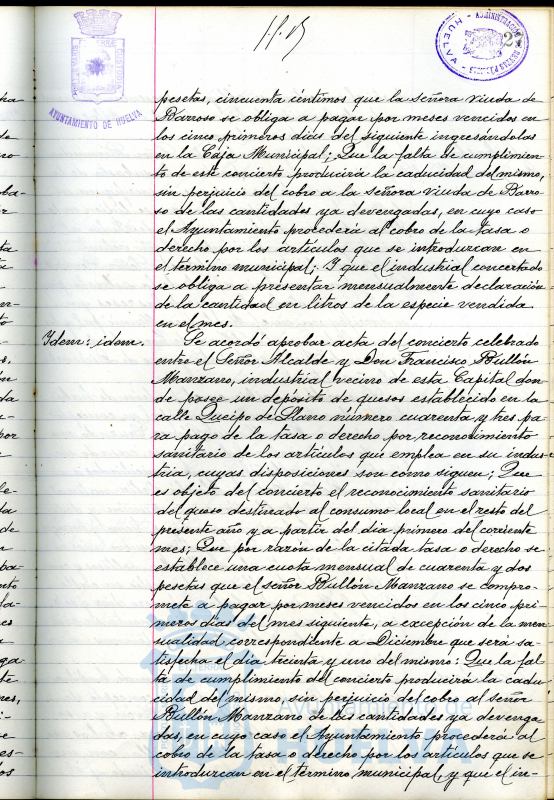 AYUNTAMIENTO DE HUELVA
HUELVA
pesetas, cincuenta céntimos que la señora viuda de
Barroso se obliga a pagar por meses vencidos en
los cinco primeros dias del siguiente ingresándolas
en la Caja Municipal; Que la falta de cumplimien-
to de este concierto producirá la caducidad del mismo,
sin perjuicio del cobro a la señora viuda de Barro-
so de las cantidades ya devengadas, en cuyo caso
el Ayuntamiento procederá al cobro de la tasa o
derecho por los artículos que se introduzcan en
el término municipal; Y que el industrial concertado
se obliga a presentar mensualmente declaración
de la cantidad en litros de la especie vendida
en el mes.
Idem: idem.
Se acordó aprobar acta del concierto celebrado
entre el Señor Alcalde y Don Francisco Bullón
Manzano, industrial vecino de esta Capital don-
de posee un depósito de quesos establecido en la
calle Queipo de Llano número cuarenta y tres pa-
ra pago de la tasa o derecho por reconocimiento
sanitario de los artículos que emplea en su indus-
tria, cuyas disposiciones son como siguen; Que
es objeto del concierto el reconocimiento sanitario
del queso destinado al consumo local en el resto del
presente año y a partir del dia primero del corriente
mes; Que por razón de la citada tasa o derecho se
establece una cuota mensual de cuarenta y dos
pesetas que el señor Bullón Manzano se compro-
mete a pagar por meses vencidos en los cinco pri-
meros dias del mes siguiente, a excepción de la men-
sualidad correspondiente a Diciembre que será sa-
tisfecha el dia treinta y uno del mismo: Que la fal-
ta de cumplimiento del concierto producirá la cadu-
cidad del mismo, sin perjuicio del cobro al señor
Bullón Manzano de las cantidades ya devenga-
das, en cuyo caso el Ayuntamiento procederá al
cobro de la tasa o derecho por los artículos que se
introduzcan en el término municipal, y que el in-
Ayuntamiento de
HUELVA